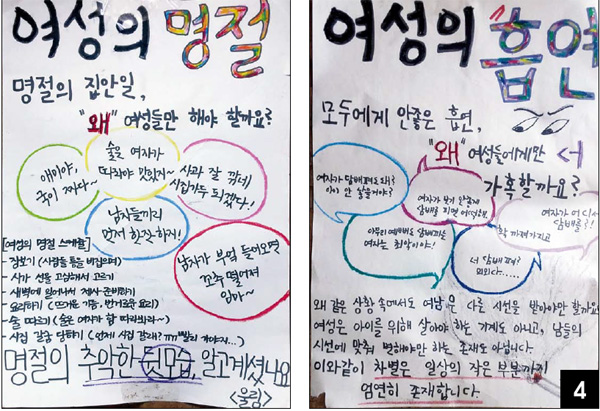 여성의 명절
명절의 집안일,
"왜" 여성들만 해야 할까요?
애미야,
국이 짜다~
술은 여자가
따라야 맛있지~
사과 잘 깎네
시집가도 되겠다!
남자들끼리
먼저 한잔하지!
남자가 부엌 들어오면
꼬추 떨어져
임마~
[여성의 명절 스케줄]
- 장보기 (사람들 틈을 비집으며)
- 시가 선물 고심해서 고르기
- 새벽에 일어나서 제사 준비하기
- 요리하기 (뜨거운 기름, 번거로운 요리)
- 술 따르기 (술은 여자가 따라줘야~)
- 시집 갈굼 당하기 (언제 시집 갈래?
명절의 추악한 뒷모습, 알고계셨나요
<울림>
여성의 흡연
모두에게 안좋은 흡연,
"왜" 여성들에게만 더
가혹할까요?
여자가 담배펴도 돼?
아이 안 낳을거야?
여자가 보기 안좋게
담배를 피면 어떡해
여자가 어디서
담배를?!
아무리 예뻐도 담배피는
여자는 최악이야!
너 담배 펴?
의외다.....
왜 같은 상황 속에서도 여남은 다른 시선을 받아야만 할까요
여성은 아이를 위해 살아야 하는 기계도 아니고, 남들의
시선에 맞춰 변해야만 하는 존재도 아닙니다.
이와같이 차별은 일상의 작은 부분까지
엄연히 존재합니다
4